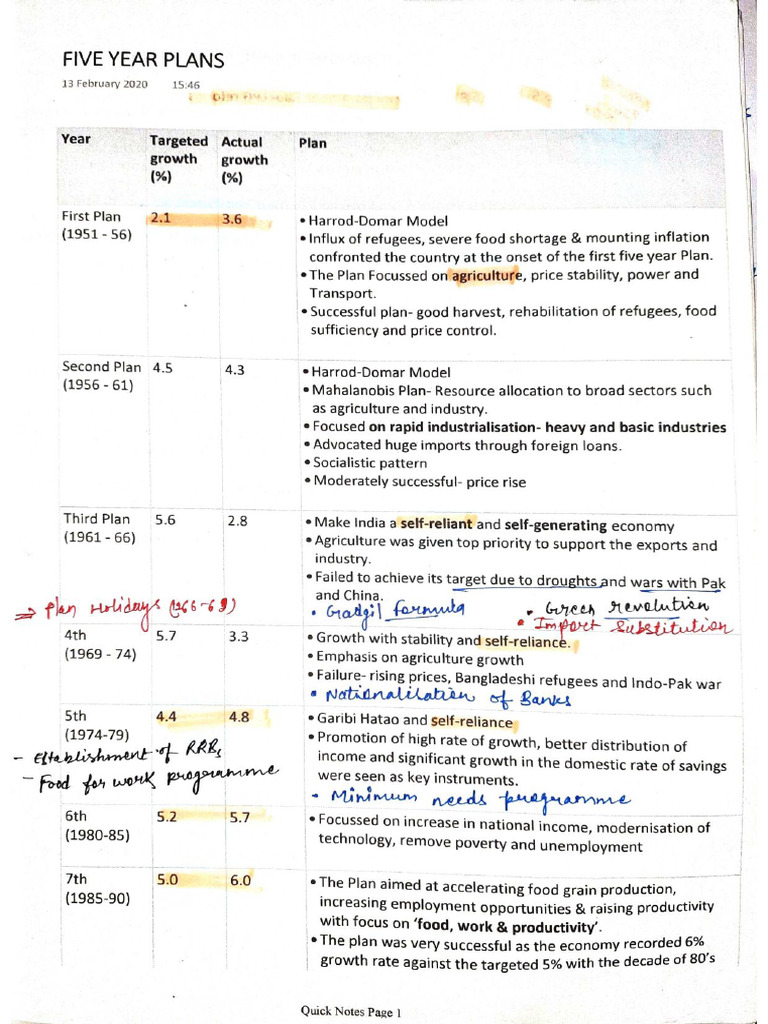 FIVE YEAR PLANS
13 February 2020 15:46
Year Targeted growth (%) Actual growth (%) Plan
First Plan (1951 - 56) 2.1 3.6
• Harrod-Domar Model
• Influx of refugees, severe food shortage & mounting inflation
confronted the country at the onset of the first five year Plan.
• The Plan Focussed on agriculture, price stability, power and
Transport.
• Successful plan- good harvest, rehabilitation of refugees, food
sufficiency and price control.
Second Plan (1956 - 61) 4.5 4.3
• Harrod-Domar Model
• Mahalanobis Plan- Resource allocation to broad sectors such
as agriculture and industry.
• Focused on rapid industrialisation- heavy and basic industries
• Advocated huge imports through foreign loans.
• Socialistic pattern
• Moderately successful- price rise
Third Plan (1961 - 66) 5.6 2.8
• Make India a self-reliant and self-generating economy
• Agriculture was given top priority to support the exports and
industry.
• Failed to achieve its target due to droughts and wars with Pak
and China.
• Gadgil formula • Green revolution
• Import Substitution
⇒ Plan Holidays (1966-69)
4th (1969 - 74) 5.7 3.3
• Growth with stability and self-reliance.
• Emphasis on agriculture growth
• Failure- rising prices, Bangladeshi refugees and Indo-Pak war
• Nationalilation of Banks
5th (1974-79) 4.4 4.8
- Establishment of RRBs
- Food for work programme
• Garibi Hatao and self-reliance
• Promotion of high rate of growth, better distribution of
income and significant growth in the domestic rate of savings
were seen as key instruments.
• Minimum needs programme
6th (1980-85) 5.2 5.7
• Focussed on increase in national income, modernisation of
technology, remove poverty and unemployment
7th (1985-90) 5.0 6.0
• The Plan aimed at accelerating food grain production,
increasing employment opportunities & raising productivity
with focus on 'food, work & productivity'.
• The plan was very successful as the economy recorded 6%
growth rate against the targeted 5% with the decade of 80's
Quick Notes Page 1